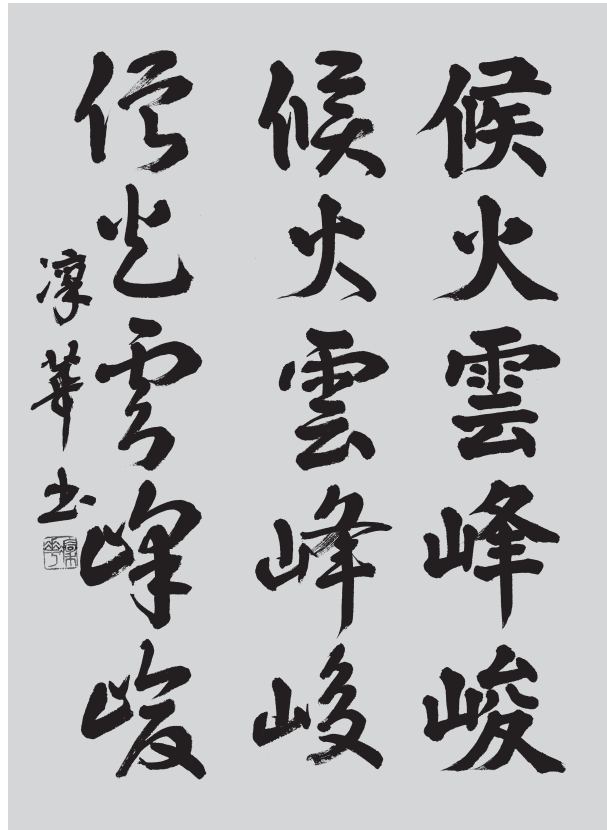 候火雲峰峻
候火雲峰峻
候火雲峰峻
凛華書